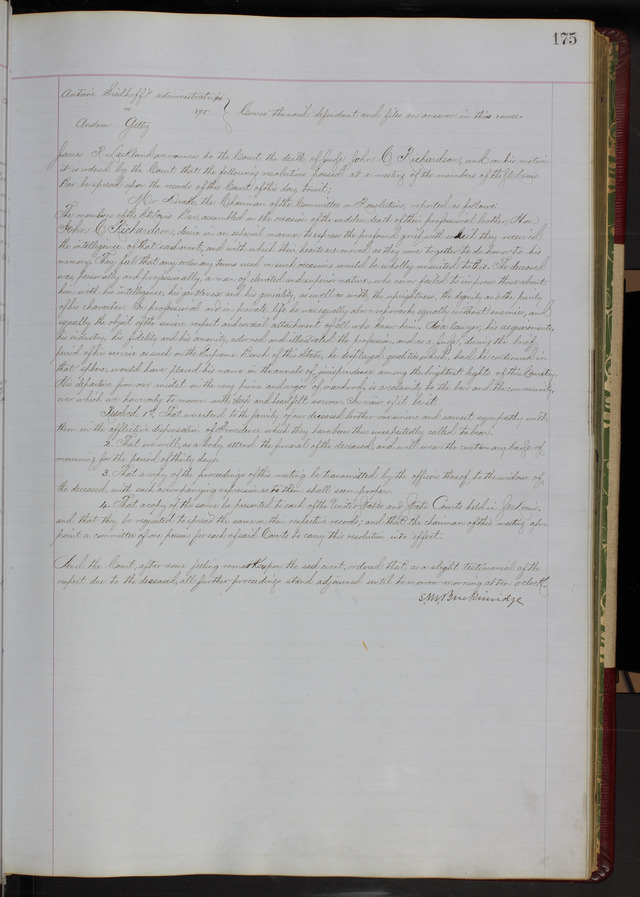 175
Antoine Seidhoff's administratrix
vs } Comes the said defendant and files an answer in this cause
Andrew Getty
James R. Lackland announces to the Court the death of Judge John C Richardson, and on his motion
it is ordered by the Court that the following resolutions passed at a meeting of the members of the St Louis
Bar be spread upon the records of this Court of this day, to wit;
Mr Drake, the Chairman of the Committee on Resolutions, reported as follows:
The members of the St Louis Bar, assembled on the occasion of the sudden death of their professional brother, Hon
John C Richardson, desire in an especial manner to express the profound grief with which they received
the intelligence of that sad event, and with which their hearts are moved as they come together to do honor to his
memory. They feel that any ordinary terms used on such occasions would be wholly unsuited to this. The deceased
was, personally and professionally, a man of elevated and superior nature, who never failed to impress those about
him with his intelligence, his gentleness and his geniality, as well as with the uprightness, the dignity and the purity
of his character. In professional and in private life he was equally above reproach, equally without enemies, and
equally the object of the sincere respect and cordial attachment of all who knew him. As a lawyer, his acquirements,
his industry, his fidelity and his sincerity, adorned and illustrated the profession, and as a Judge, during the brief
period of his service as such on the Supreme Bench of this State, he displayed qualities, which, had he continued in
that sphere, would have placed his name in the annals of jurisprudence among the brightest lights of the Country.
His departure from our midst in the very prime and vigor of manhood, is a calamity to the bar and the community,
over which we have only to mourn with deep and heartfelt sorrow. In view of it be it
Resolved 1st, That we extend to the family of our deceased brother our sincere and earnest sympathy with
them in the afflictive dispensation of Providence which they have been thus unexpectedly called to bear.
2. That we will, as a body, attend the funeral of the deceased, and will wear the customary badge of
mourning for the period of thirty days.
3. That a copy of the proceedings of this meeting be transmitted by the officers thereof, to the widow of
the deceased, with such accompanying expression as to them shall seem proper.
4. That a copy of the same be presented to each of the United States and State Courts held in St Louis,
and that they be requested to spread the same on their respective records; and that the chairman of this meeting ap-
point a committee of one person for each of said Courts to carry this resolution into effect.
And the Court, after some feeling remarks upon the sad event, ordered that, as a slight testimonial of the
respect due to the deceased, all further proceedings stand adjourned until to morrow morning at ten o'clock
S. M. Breckinridge